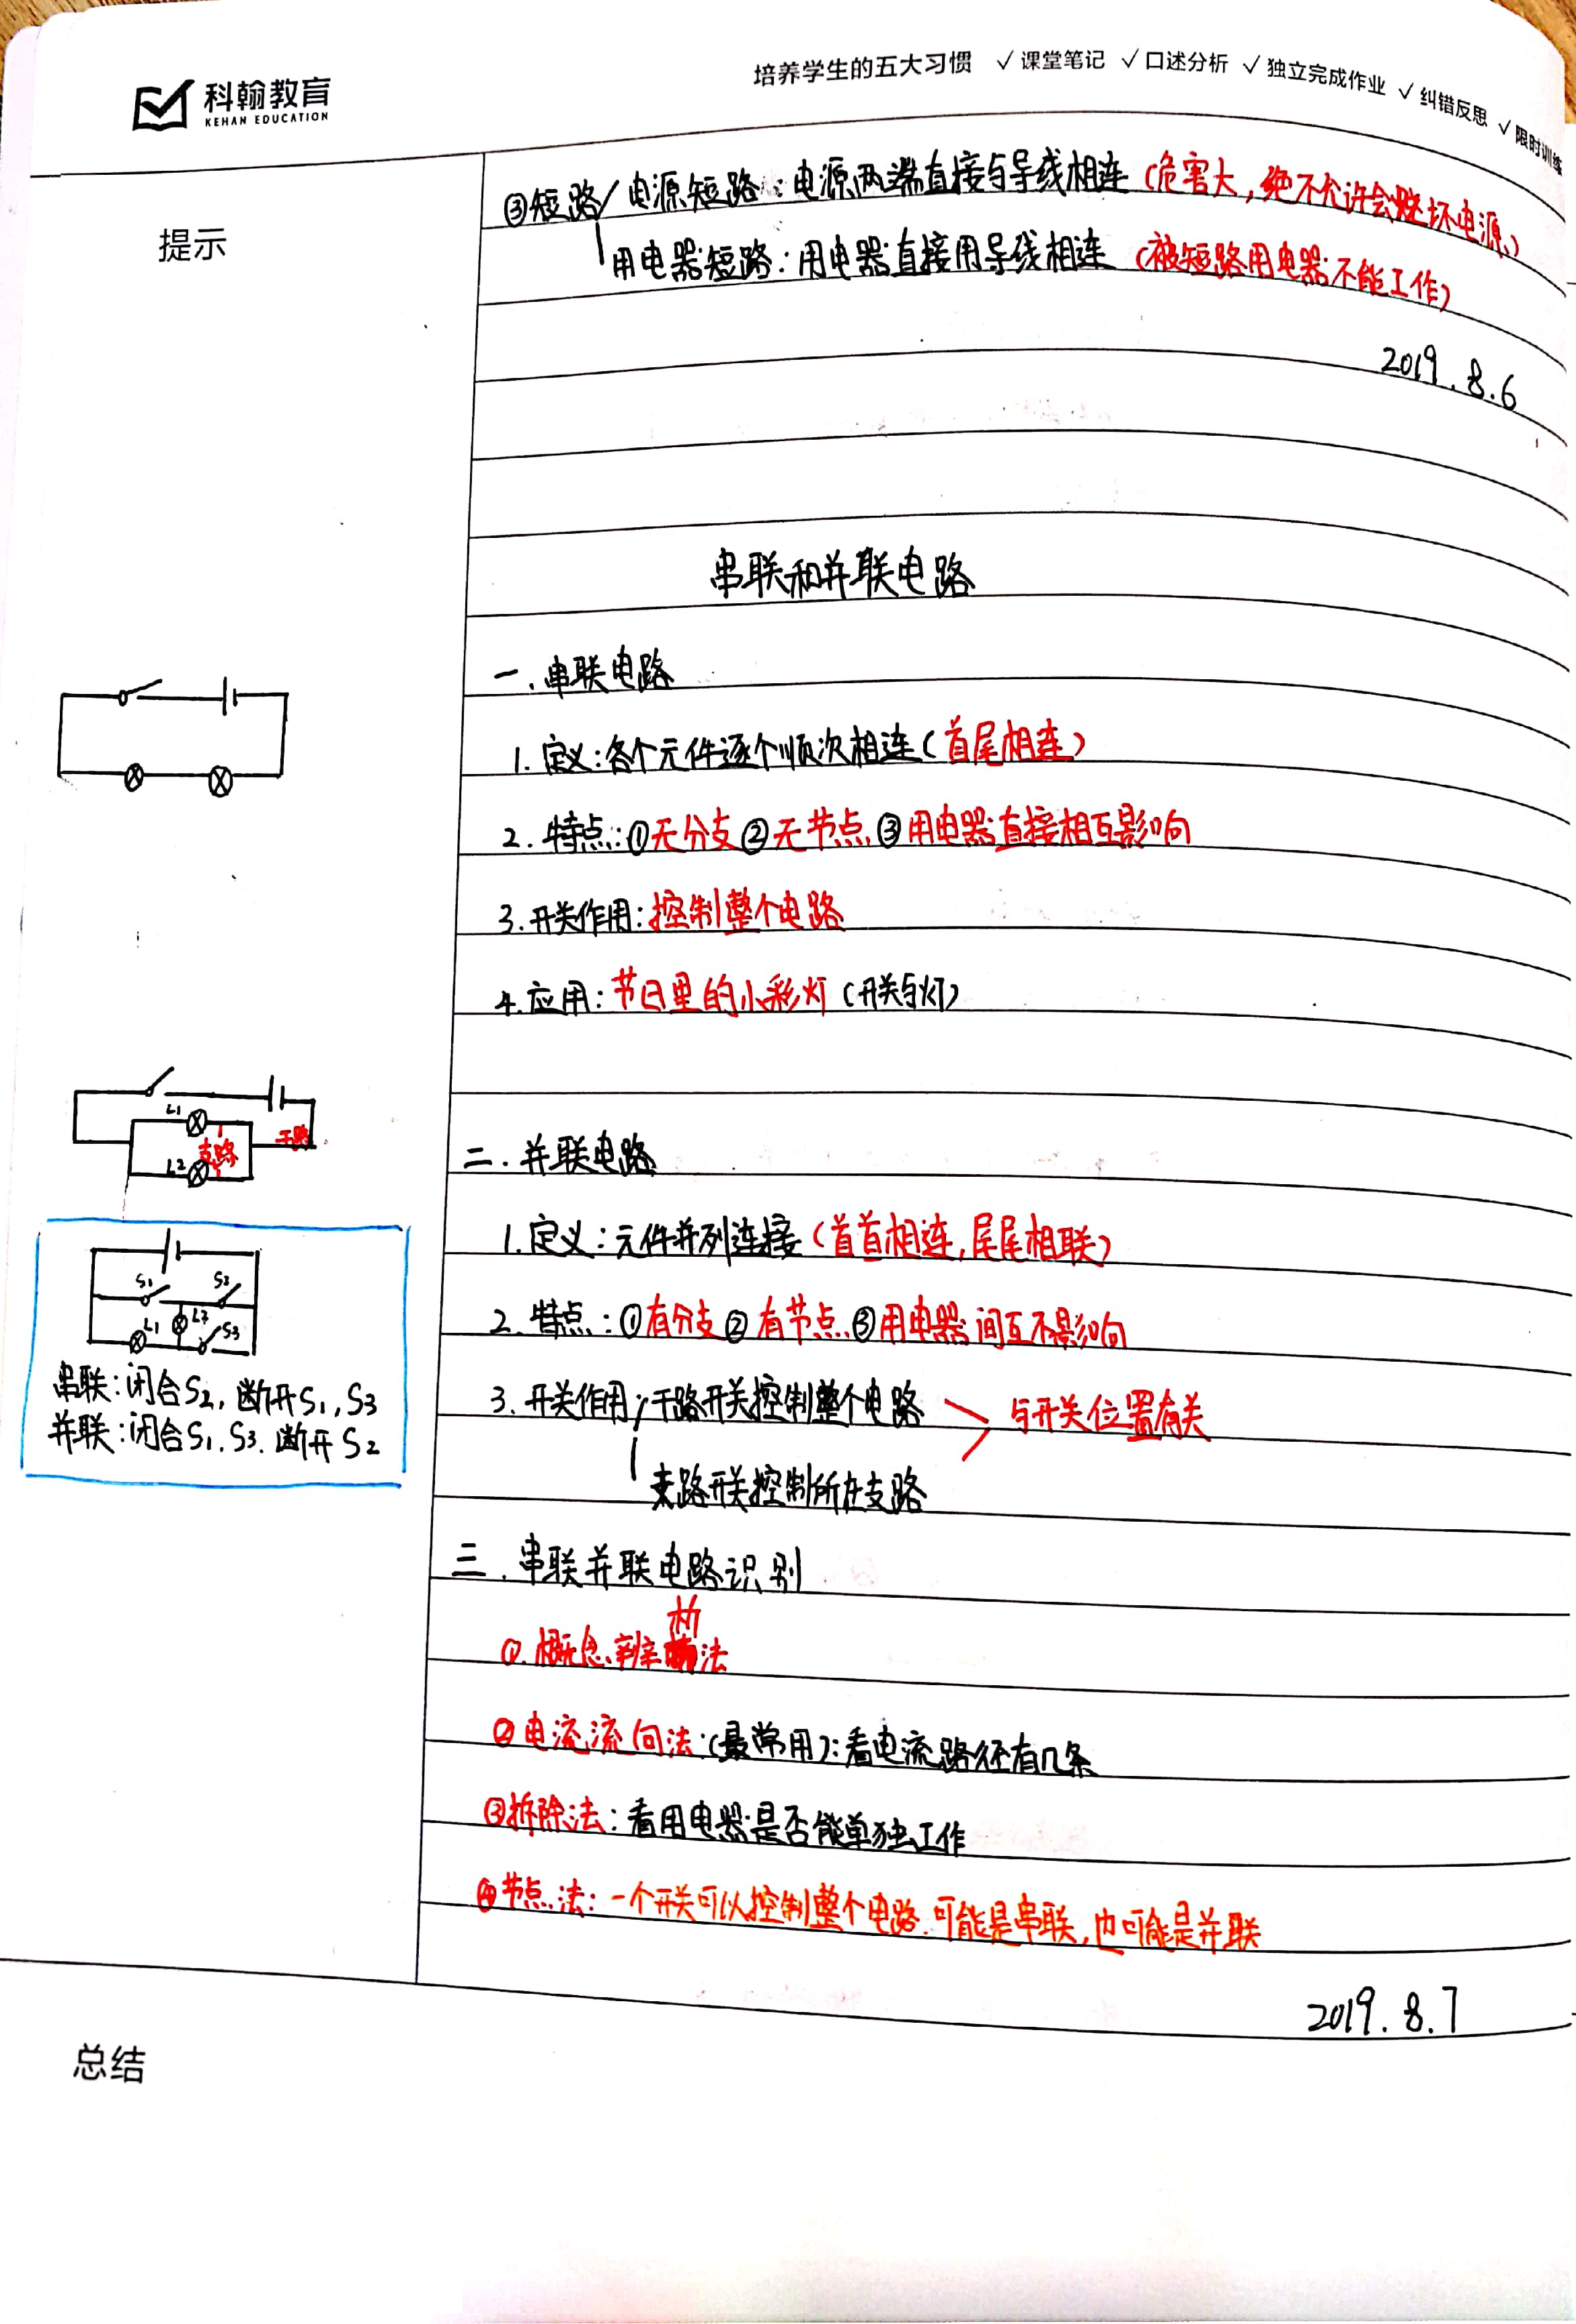 科翰教育
KEHAN EDUCATION
培养学生的五大习惯 √课堂笔记 √口述分析 √独立完成作业 √纠错反思 √限时训练
提示
③短路 电源短路：电源两端直接与导线相连（危害大，绝不允许会烧坏电源）
用电器短路：用电器直接用导线相连（被短路用电器不能工作）
2019.8.6
串联和并联电路
一．串联电路
1. 定义：各个元件逐个顺次相连（首尾相连）
2. 特点：①无分支②无节点③用电器直接相互影响
3. 开关作用：控制整个电路
4. 应用：节日里的小彩灯（开关与灯）
L1
支路
干路
L2
二．并联电路
1. 定义：元件并列连接（首首相连，尾尾相联）
2. 特点：①有分支②有节点③用电器间互不影响
3. 开关作用：干路开关控制整个电路
与开关位置有关
支路开关控制所在支路
S1 S2
L1 L2 S3
串联：闭合S2，断开S1，S3
并联：闭合S1．S3．断开S2
三．串联并联电路识别
①．概念辨析法
②电流流向法：（最常用）：看电流路径有几条
③拆除法：看用电器是否能单独工作
④节点法：一个开关可以控制整个电路．可能是串联，也可能是并联
2019.8.7
总结